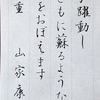 字躍動し
ともに蘇るような
をおぼえます
重　山家康